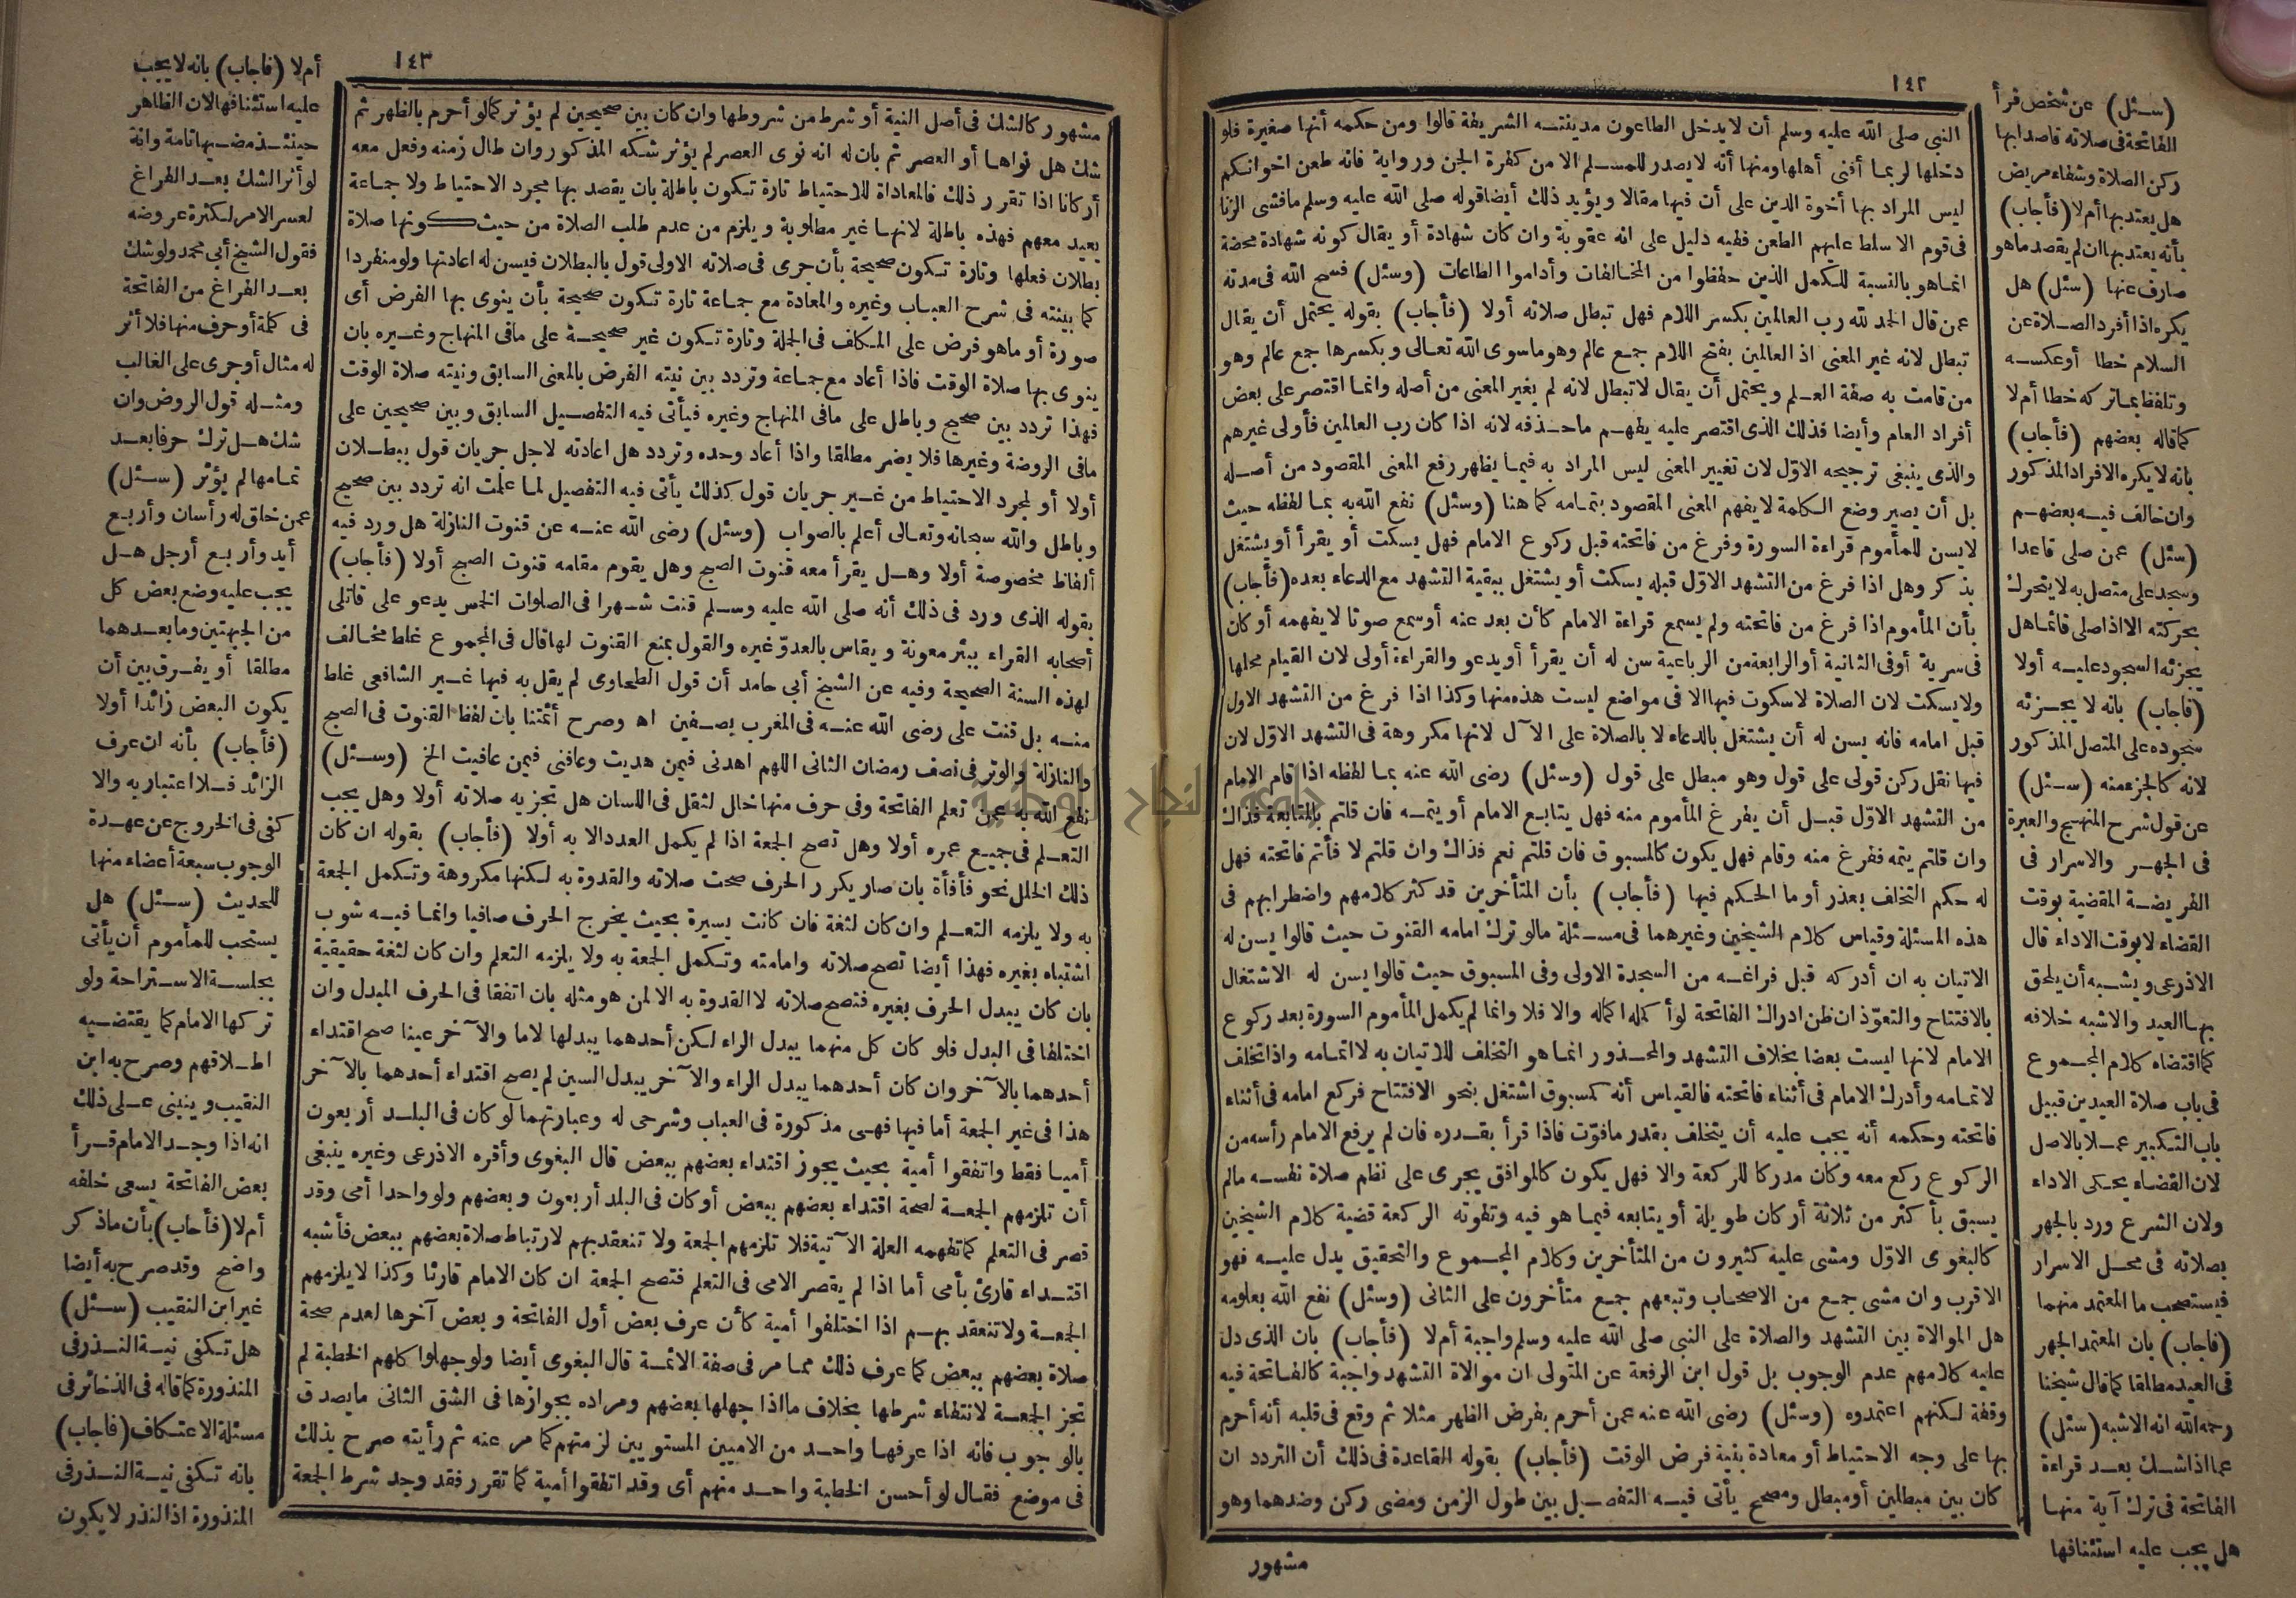 ١٤٢
النبي صلى الله عليه وسلم أن لا يدخل الطاعون مدينته الشريفة قالوا ومن حكمه أنها صغيرة فلو
دخلها لربما أفنى أهلها ومنها أنه لا يصدر للمسلم الا من كفرة الجن ورواية فانه طعن اخوانكم
ليس المراد بها أخوة الدين على أن فيها مقالا ويؤيد ذلك أيضا قوله صلى الله عليه وسلم ما فشى الزنا
فى قوم الا سلط عليهم الطعن ففيه دليل على انه عقوبة وان كان شهادة أو يقال كونه شهادة محضة
انما هو بالنسبة للكمل الذين حفظوا من المخالفات وأداموا الطاعات (وسئل) فسح الله فى مدته
عمن قال الحمد لله رب العالمين بكسر اللام فهل تبطل صلاته أولا (فأجاب) بقوله يحتمل أن يقال
تبطل لانه غير المعنى اذ العالمين بفتح اللام جمع عالم وهو ما سوى الله تعالى وبكسرها جمع عالم وهو
من قامت به صفة العلم ويحتمل أن يقال لا تبطل لانه لم يغير المعنى من أصله وانما اقتصر على بعض
أفراد العام وأيضا فذلك الذى اقتصر عليه يفهم ما حذفه لانه اذا كان رب العالمين فأولى غيرهم
والذى ينبغى ترجيحه الاول لان تغيير المعنى ليس المراد به فيما يظهر رفع المعنى المقصود من أصله
بل أن يصير وضع الكلمة لا يفهم المعنى المقصود بتمامه كما هنا (وسئل) نفع الله به بما لفظه حيث
لا يسن للمأموم قراءة السورة وفرغ من فاتحته قبل ركوع الامام فهل يسكت أو يقرأ أو يشتغل
بذكر وهل اذا فرغ من التشهد الاول قبله يسكت أو يشتغل ببقية التشهد مع الدعاء بعده (فأجاب)
بأن المأموم اذا فرغ من فاتحته ولم يسمع قراءة الامام كأن بعد عنه أو سمع صوتا لا يفهمه أو كان
فى سرية أو فى الثانية أو الرابعة من الرباعية سن له أن يقرأ أو يدعو والقراءة أولى لان القيام محلها
ولا يسكت لان الصلاة لا سكوت فيها الا فى مواضع ليست هذه منها وكذا اذا فرغ من التشهد الاول
قبل امامه فانه يسن له أن يشتغل بالدعاء لا بالصلاة على الآل لانها مكروهة فى التشهد الاول لان
فيها نقل ركن قولى على قول وهو مبطل على قول (وسئل) رضى الله عنه بما لفظه اذا قام الامام
من التشهد الاول قبل أن يفرغ المأموم منه فهل يتابع الامام أو يتمه فان قلتم بالمتابعة فذاك
وان قلتم يتمه ففرغ منه وقام فهل يكون كالمسبوق فان قلتم نعم فذاك وان قلتم لا فأتم فاتحته فهل
له حكم التخلف بعذر أو ما الحكم فيها (فأجاب) بأن المتأخرين قد كثر كلامهم واضطرابهم فى
هذه المسئلة وقياس كلام الشيخين وغيرهما فى مسئلة ما لو ترك امامه القنوت حيث قالوا يسن له
الاتيان به ان أدركه قبل فراغه من السجدة الاولى وفى المسبوق حيث قالوا يسن له الاشتغال
بالافتتاح والتعوذ ان ظن ادراك الفاتحة لو أكمله اكماله والا فلا وانما لم يكمل المأموم السورة بعد ركوع
الامام لانها ليست بعضا بخلاف التشهد والمحذور انما هو التخلف للاتيان به لا اتمامه واذا تخلف
لاتمامه وأدرك الامام فى أثناء فاتحته فالقياس أنه كمسبوق اشتغل بنحو الافتتاح فركع امامه فى أثناء
فاتحته وحكمه أنه يجب عليه أن يتخلف بقدر ما فوت فاذا قرأ بقدره فان لم يرفع الامام رأسه من
الركوع ركع معه وكان مدركا للركعة والا فهل يكون كالموافق يجرى على نظم صلاة نفسه مالم
يسبق بأكثر من ثلاثة أركان طويلة أو يتابعه فيما هو فيه وتفوته الركعة قضية كلام الشيخين
كالبغوى الاول ومشى عليه كثيرون من المتأخرين وكلام المجموع والتحقيق يدل عليه فهو
الاقرب وان مشى جمع من الاصحاب وتبعهم جمع متأخرون على الثانى (وسئل) نفع الله بعلومه
هل الموالاة بين التشهد والصلاة على النبي صلى الله عليه وسلم واجبة أم لا (فأجاب) بان الذى دل
عليه كلامهم عدم الوجوب بل قول ابن الرفعة عن المتولى ان موالاة التشهد واجبة كالفاتحة فيه
وقفة لكنهم اعتمدوه (وسئل) رضى الله عنه عمن أحرم بفرض الظهر مثلا ثم وقع فى قلبه أنه أحرم
بها على وجه الاحتياط أو معادة بنية فرض الوقت (فأجاب) بقوله القاعدة فى ذلك أن التردد ان
كان بين مبطلين أو مبطل ومصحح يأتى فيه التفصيل بين طول الزمن ومضى ركن وضدهما وهو
مشهور
(سئل) عن شخص قرأ
الفاتحة فى صلاته قاصدا بها
ركن الصلاة وشفاء مريض
هل يعتد بها أم لا (فأجاب)
بأنه يعتد بها ان لم يقصد ما هو
صارف عنها (سئل) هل
يكره اذا أفرد الصلاة عن
السلام خطا أو عكسه
وتلفظ بما تركه خطا أم لا
كما قاله بعضهم (فأجاب)
بانه لا يكره الافراد المذكور
وان خالف فيه بعضهم
(سئل) عمن صلى قاعدا
وسجد على متصل به لا يتحرك
بحركته الا اذا صلى قائما هل
يجزئه السجود عليه أولا
(فاجاب) بانه لا يجزئه
سجوده على المتصل المذكور
لانه كالجزء منه (سئل)
عن قول شرح المنهج والعبرة
فى الجهر والاسرار فى
الفريضة المقضية بوقت
القضاء لا بوقت الاداء قال
الاذرعى ويشبه أن يلحق
بها العيد والاشبه خلافه
كما اقتضاه كلام المجموع
فى باب صلاة العيدين قبيل
باب التكبير عملا بالاصل
لان القضاء يحكى الاداء
ولان الشرع ورد بالجهر
بصلاته فى محل الاسرار
فيستصحب ما المعتمد منهما
(فاجاب) بان المعتمد الجهر
فى العيد مطلقا كما قال شيخنا
رحمه الله انه الاشبه (سئل)
عما اذا شك بعد قراءة
الفاتحة فى ترك آية منها
هل يجب عليه استئنافها
١٤٣
مشهور كالشك فى أصل النية أو شرط من شروطها وان كان بين صحيحين لم يؤثر كما لو أحرم بالظهر ثم
شك هل نواها أو العصر ثم بان له انه نوى العصر لم يؤثر شكه المذكور وان طال زمنه وفعل معه
أركانا اذا تقرر ذلك فالمعاداة للاحتياط تارة تكون باطلة بان يقصد بها مجرد الاحتياط ولا جماعة
يعيد معهم فهذه باطلة لانها غير مطلوبة ويلزم من عدم طلب الصلاة من حيث كونها صلاة
بطلان فعلها وتارة تكون صحيحة بأن جرى فى صلاته الاولى قول بالبطلان فيسن له اعادتها ولو منفردا
كما بينته فى شرح العباب وغيره والمعادة مع جماعة تارة تكون صحيحة بأن ينوى بها الفرض أى
صورة أو ما هو فرض على المكلف فى الجملة وتارة تكون غير صحيحة على مافى المنهاج وغيره بان
ينوى بها صلاة الوقت فاذا أعاد مع جماعة وتردد بين نيته الفرض بالمعنى السابق ونيته صلاة الوقت
فهذا تردد بين صحيح وباطل على مافى المنهاج وغيره فيأتى فيه التفصيل السابق وبين صحيحين على
مافى الروضة وغيرها فلا يضر مطلقا واذا أعاد وحده وتردد هل اعادته لاجل جريان قول ببطلان
أولا أو لمجرد الاحتياط من غير جريان قول كذلك يأتى فيه التفصيل لما علمت انه تردد بين صحيح
وباطل والله سبحانه وتعالى أعلم بالصواب (وسئل) رضى الله عنه عن قنوت النازلة هل ورد فيه
ألفاظ مخصوصة أولا وهل يقرأ معه قنوت الصبح وهل يقوم مقامه قنوت الصبح أولا (فأجاب)
بقوله الذى ورد فى ذلك أنه صلى الله عليه وسلم قنت شهرا فى الصلوات الخمس يدعو على قاتلى
أصحابه القراء ببئر معونة ويقاس بالعدو غيره والقول بمنع القنوت لها قال فى المجموع غلط مخالف
لهذه السنة الصحيحة وفيه عن الشيخ أبى حامد أن قول الطحاوى لم يقل به فيها غير الشافعى غلط
منه بل قنت على رضى الله عنه فى المغرب بصفين اه وصرح أئمتنا بان لفظ القنوت فى الصبح
والنازلة والوتر فى نصف رمضان الثانى اللهم اهدنى فيمن هديت وعافنى فيمن عافيت الخ (وسئل)
نفع الله به عمن تعلم الفاتحة وفى حرف منها خال لثقل فى اللسان هل تجزيه صلاته أولا وهل يجب
التعلم فى جميع عمره أولا وهل تصح الجمعة اذا لم يكمل العدد الا به أولا (فأجاب) بقوله ان كان
ذلك الخلل نحو فأفأة بان صار يكرر الحرف صحت صلاته والقدوة به لكنها مكروهة وتكمل الجمعة
به ولا يلزمه التعلم وان كان لثغة فان كانت يسيرة بحيث يخرج الحرف صافيا وانما فيه شوب
اشتباه بغيره فهذا أيضا تصح صلاته وامامته وتكمل الجمعة به ولا يلزمه التعلم وان كان لثغة حقيقية
بان كان يبدل الحرف بغيره فتصح صلاته لا القدوة به الا لمن هو مثله بان اتفقا فى الحرف المبدل وان
اختلفا فى البدل فلو كان كل منهما يبدل الراء لكن أحدهما يبدلها لاما والآخر عينا صح اقتداء
أحدهما بالآخر وان كان أحدهما يبدل الراء والآخر يبدل السين لم يصح اقتداء أحدهما بالآخر
هذا فى غير الجمعة أما فيها فهى مذكورة فى العباب وشرحى له وعبارتهما لو كان فى البلد أربعون
أميا فقط واتفقوا أمية بحيث يجوز اقتداء بعضهم ببعض قال البغوى وأقره الاذرعى وغيره ينبغى
أن تلزمهم الجمعة لصحة اقتداء بعضهم ببعض أو كان فى البلد أربعون وبعضهم ولو واحدا أمى وقد
قصر فى التعلم كما تفهمه العلة الآتية فلا تلزمهم الجمعة ولا تنعقد بهم لارتباط صلاة بعضهم ببعض فأشبه
اقتداء قارئ بأمى أما اذا لم يقصر الامى فى التعلم فتصح الجمعة ان كان الامام قارئا وكذا لا يلزمهم
الجمعة ولا تنعقد بهم اذا اختلفوا أمية كأن عرف بعض أول الفاتحة وبعض آخرها لعدم صحة
صلاة بعضهم ببعض كما عرف ذلك مما مر فى صفة الائمة قال البغوى أيضا ولو جهلوا كلهم الخطبة لم
تجز الجمعة لانتفاء شرطها بخلاف ما اذا جهلها بعضهم ومراده بجوازها فى الشق الثانى ما يصدق
بالوجوب فانه اذا عرفها واحد من الاميين المستويين لزمتهم كما مر عنه ثم رأيته صرح بذلك
فى موضع فقال لو أحسن الخطبة واحد منهم أى وقد اتفقوا أمية كما تقرر فقد وجد شرط الجمعة
أم لا (فاجاب) بانه لا يجب
عليه استئنافها لان الظاهر
حينئذ مضيها تامة وانه
لو أثر الشك بعد الفراغ
لعسر الامر لكثرة عروضه
فقول الشيخ أبى محمد ولو شك
بعد الفراغ من الفاتحة
فى كلمة أو حرف منها فلا أثر
له مثال أو جرى على الغالب
ومثله قول الروض وان
شك هل ترك حرفا بعد
تمامها لم يؤثر (سئل)
عمن خلق له رأسان وأربع
أيد وأربع أرجل هل
يجب عليه وضع بعض كل
من الجبهتين وما بعدهما
مطلقا أو يفرق بين أن
يكون البعض زائدا أولا
(فأجاب) بأنه ان عرف
الزائد فلا اعتبار به والا
كفى فى الخروج عن عهدة
الوجوب سبعة أعضاء منها
للحديث (سئل) هل
يستحب للمأموم أن يأتى
بجلسة الاستراحة ولو
تركها الامام كما يقتضيه
اطلاقهم وصرح به ابن
النقيب وينبنى على ذلك
انه اذا وجد الامام قرأ
بعض الفاتحة يسعى خلفه
أم لا (فأجاب) بأن ما ذكر
واضح وقد صرح به أيضا
غير ابن النقيب (سئل)
هل تكفى نية النذر فى
المنذورة كما قاله فى الذخائر فى
مسئلة الاعتكاف (فاجاب)
بانه تكفى نية النذر فى
المنذورة اذ النذر لا يكون
جامعة النجاح الوطنية